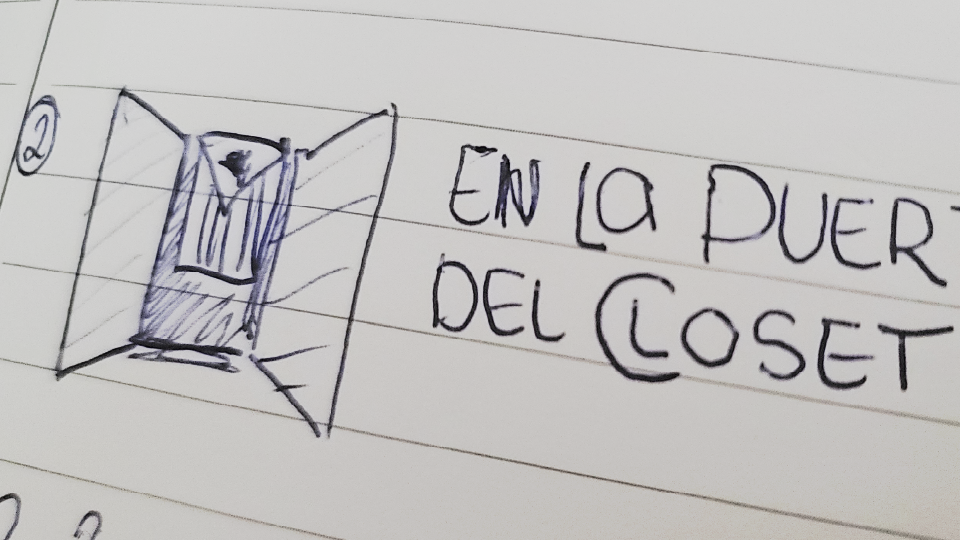 2
EN LA PUERT
DEL CLOSET